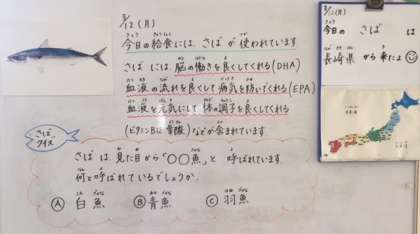 5/12(月)
今日の給食には、さばが使われています
さばには脳の働きを良くしてくれる(DHA)
血液の流れを良くして病気を防いでくれる(EPA)
血液を元気にして体の調子を良くしてくれる
(ビタミンB12 )などが含まれています
さばクイズ
さばは、見た目から「〇〇魚」と呼ばれています
何と呼ばれているでしょうか。
Ⓐ 白魚 Ⓑ 青魚 Ⓒ 羽魚
5/12(月)
今日の さば は
長崎県から来たよ